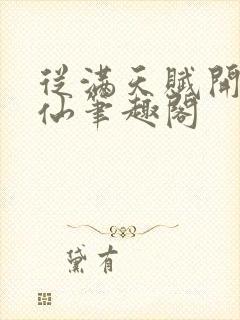 從滿天賦開
仙筆趣閣
黛有